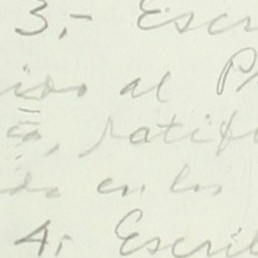 3,- Escr
ido al P
, ratif
da en los
4,- Escrit